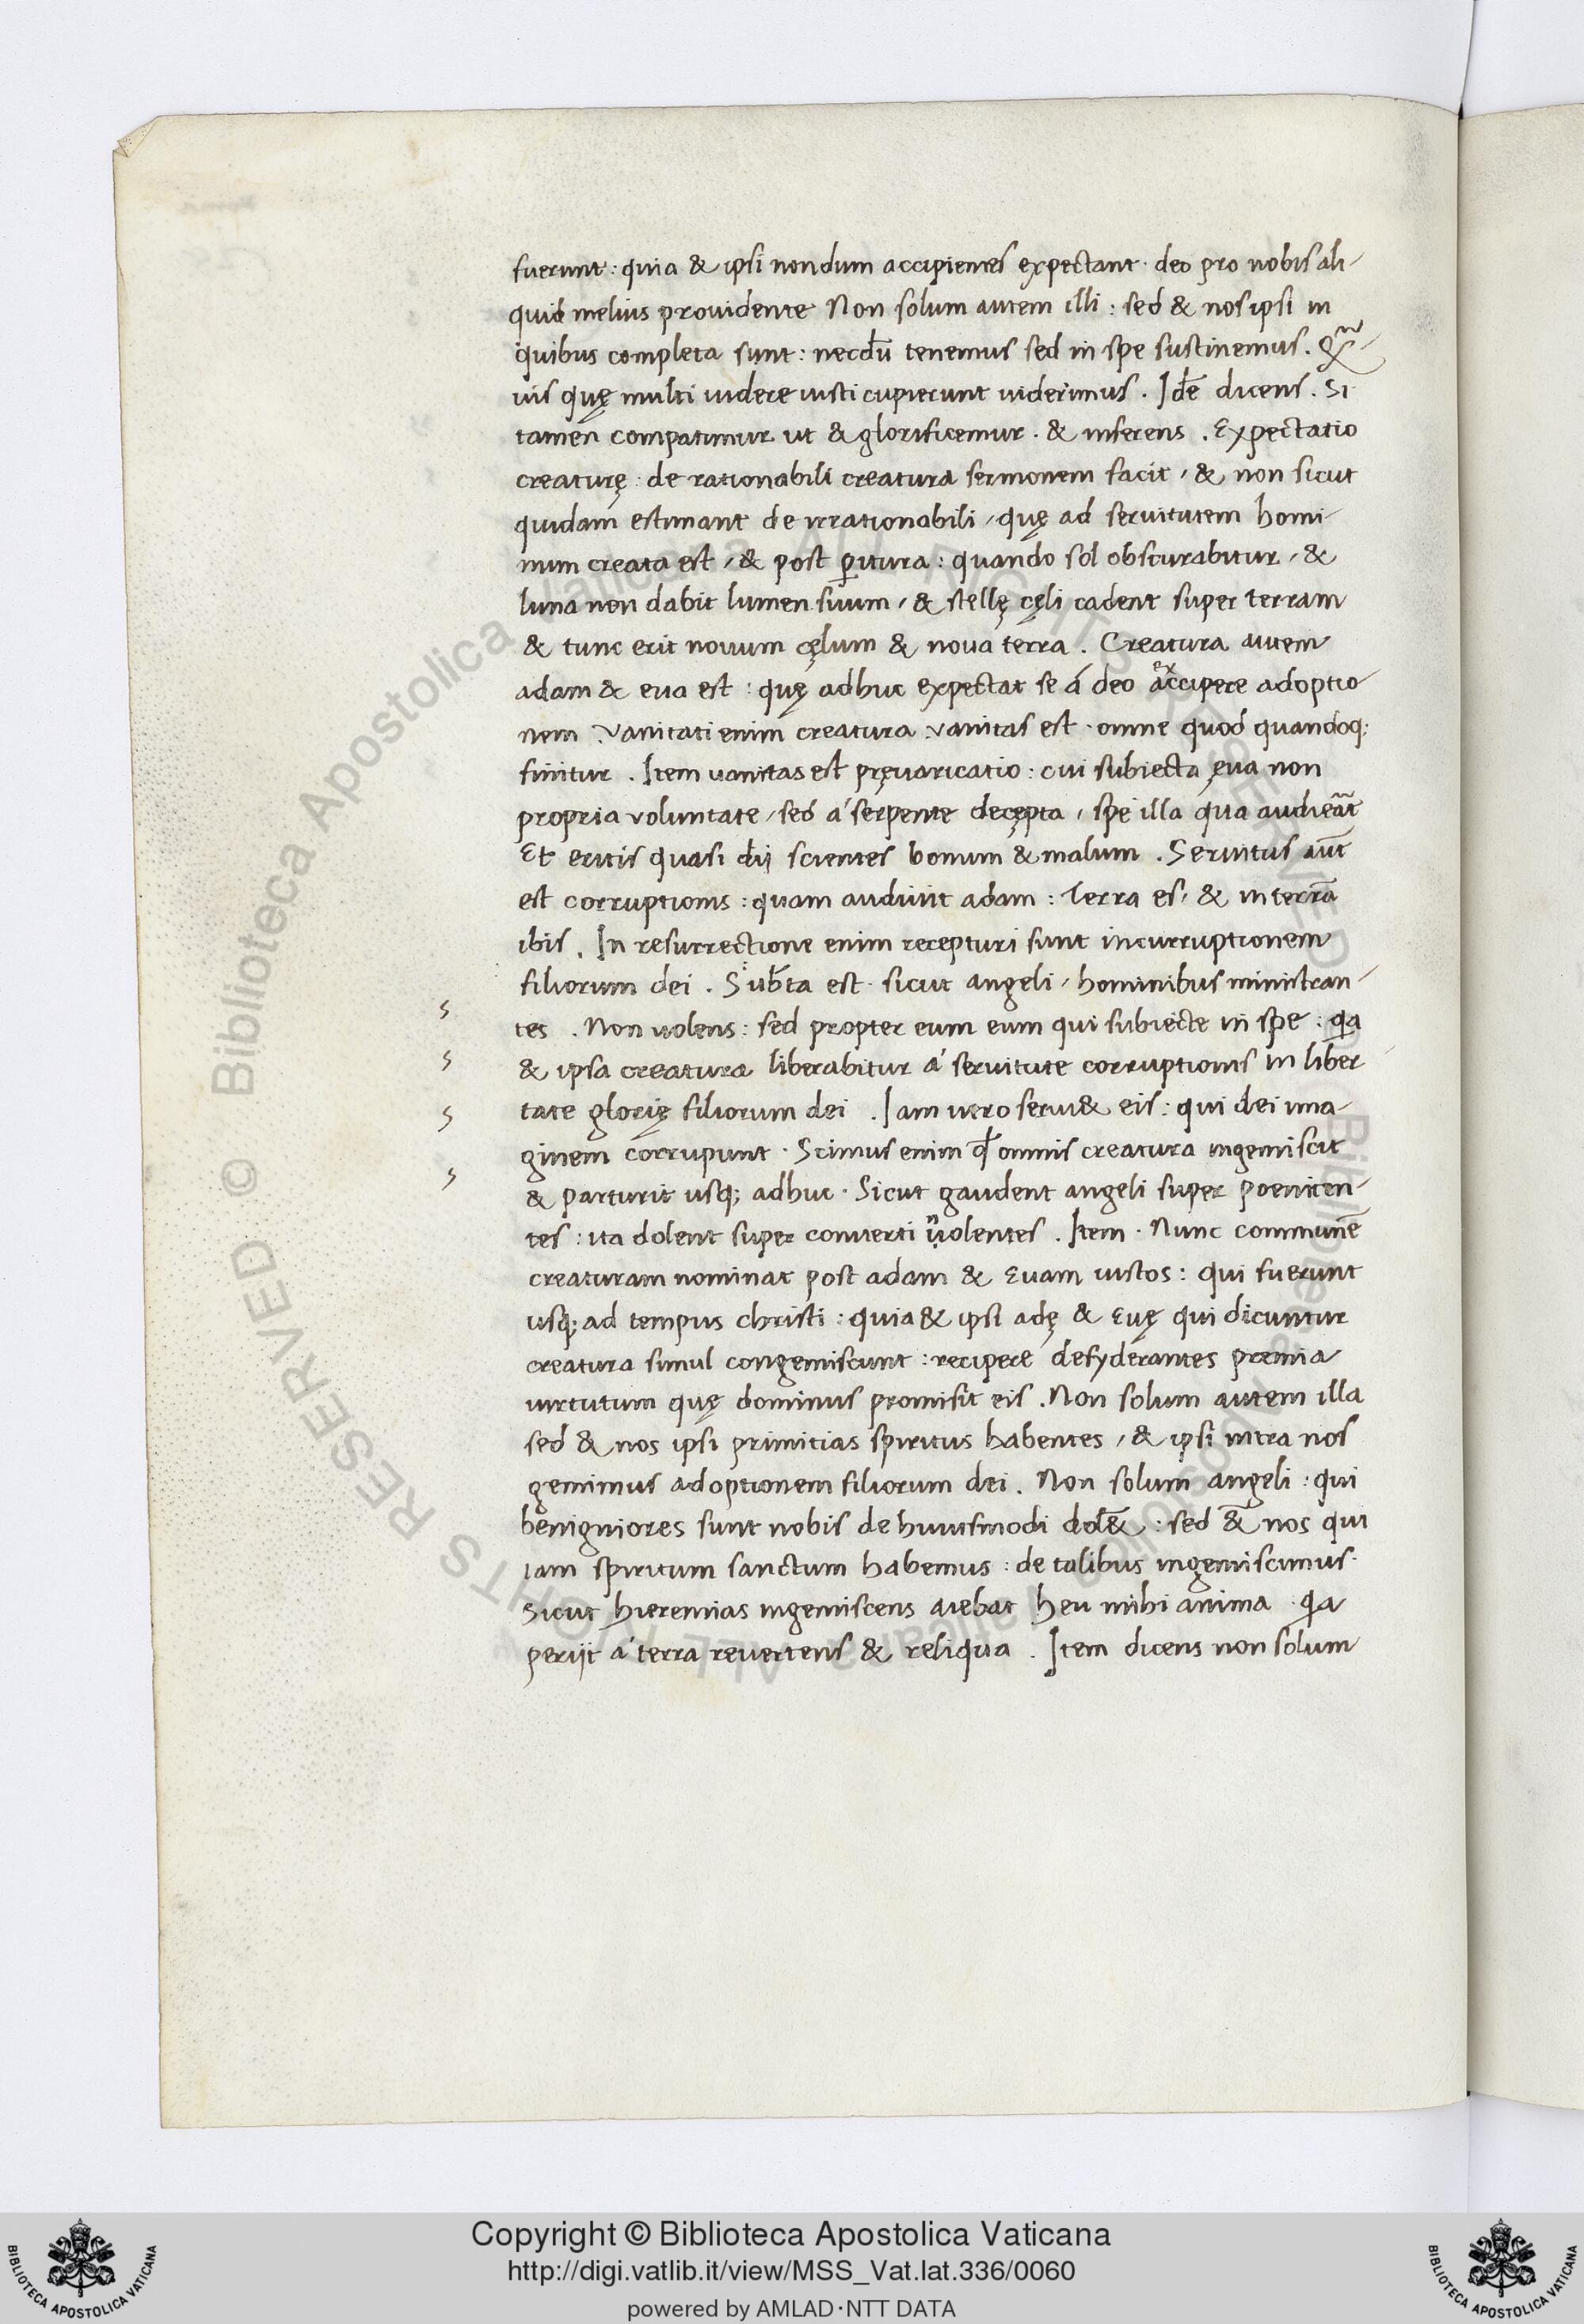 fuerunt: quia & ipsi nondum accipientes expectant · deo pro nobis ali-
quid melius prouidente Non solum autem illi: sed & nos ipsi in
quibus completa sunt: necdū tenemus sed in spe sustinemus. Qm̃-
uis quę multi uidere iusti cupierunt uiderimus. Idē dicens. Si
tamen compatimur ut & glorificemur. & inferens. Expectatio
creaturę: de rationabili creatura sermonem facit, & non sicut
quidam estimant de irrationabili, quę ad seruitutem homi-
num creata est, & post ꝑitura: quando sol obscurabitur, &
luna non dabit lumen suum, & stellę cęli cadent super terram
& tunc erit nouum cęlum & noua terra. Creatura autem
adam & eua est: quę adhuc expectat se á deo accipere adoptio
ex
nem. Vanitati enim creatura. vanitas est · omne quod quandoq;
finitur. Item uanitas est pręuaricatio: cui subiecta ęua non
propria voluntate, sed á serpente decępta, spe illa qua audieāt
Et eritis quasi dij scientes bonum & malum. Seruitus aūt
est corruptionis: quam audiuit adam: Terra es, & in terrā
ibis. In resurrectione enim recepturi sunt incurruptionem
filiorum dei. Subīta est · sicut angeli, hominibus ministran-
tes. Non uolens: sed propter eum eum qui subiecte in spe: qa
& ipsa creatura liberabitur á seruitute corruptionis in liber-
tate glorię filiorum dei. Iam uero seru& eis: qui dei ima-
ginem corrupunt · Scimus enim qđ omnis creatura ingemiscit
& parturit usq; adhuc · Sicut gaudent angeli super poeniten-
tes: ita dolent super conuerti n̄ uolentes. Item · Nunc communē
creaturam nominat post adam & Euam iustos: qui fuerunt
usq; ad tempus christi: quia & ipsi adę & Euę qui dicuntur
creatura simul congemiscunt: recipere desyderantes premia
uirtutum quę dominus promisit eis. Non solum autem illa
sed & nos ipsi primitias spiritus habentes, & ipsi intra nos
gemimus adoptionem filiorum dei. Non solum angeli: qui
benigniores sunt nobis de huiusmodi dol&̄: sed &̄ nos qui
iam spiritum sanctum habemus: de talibus ingemiscimus·
Sicut hieremias ingemiscens aiebat heu mihi anima · qa
perijt á terra reuertens & reliqua. Item dicens non solum
s
s
s
s
© Biblioteca Apostolica Vaticana ALL RIGHTS RESERVED
© Biblioteca Apostolica Vaticana ALL RIGHTS RESERVED
Copyright © Biblioteca Apostolica Vaticana
http://digi.vatlib.it/view/MSS_Vat.lat.336/0060
powered by AMLAD·NTT DATA
BIBLIOTECA APOSTOLICA VATICANA
BIBLIOTECA APOSTOLICA VATICANA